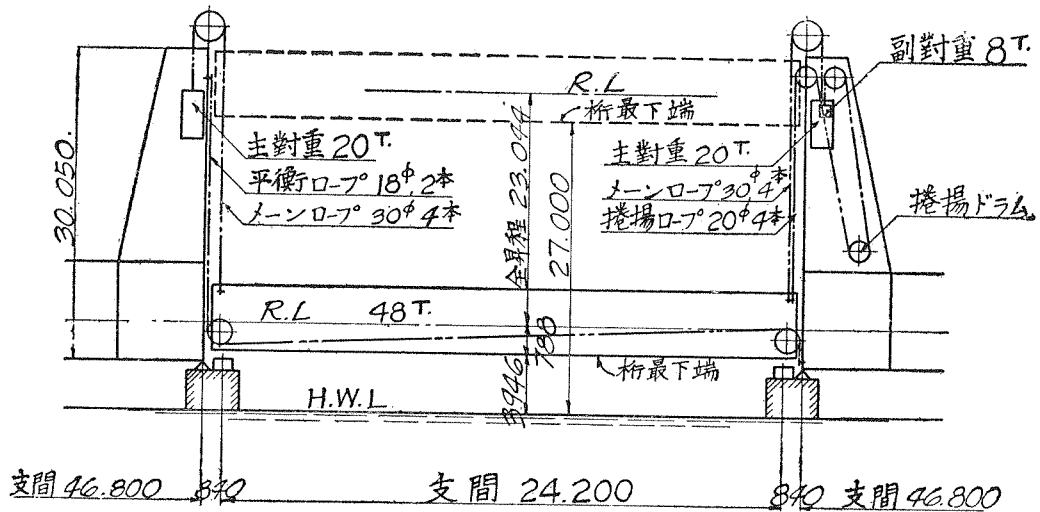 副對重 8T.
R.L
桁最下端
主對重 20T.
平衡ロープ 18φ, 2本
メーンロープ 30φ 4本
主對重 20T.
メーンロープ 30φ 4本
捲揚ロープ 20φ 4本
捲揚ドラム
30.050.
全昇程 23.044
27.000
R.L 48T.
788
桁最下端
3.946
H.W.L
支間 46.800
840
支間 24.200
840
支間 46.800